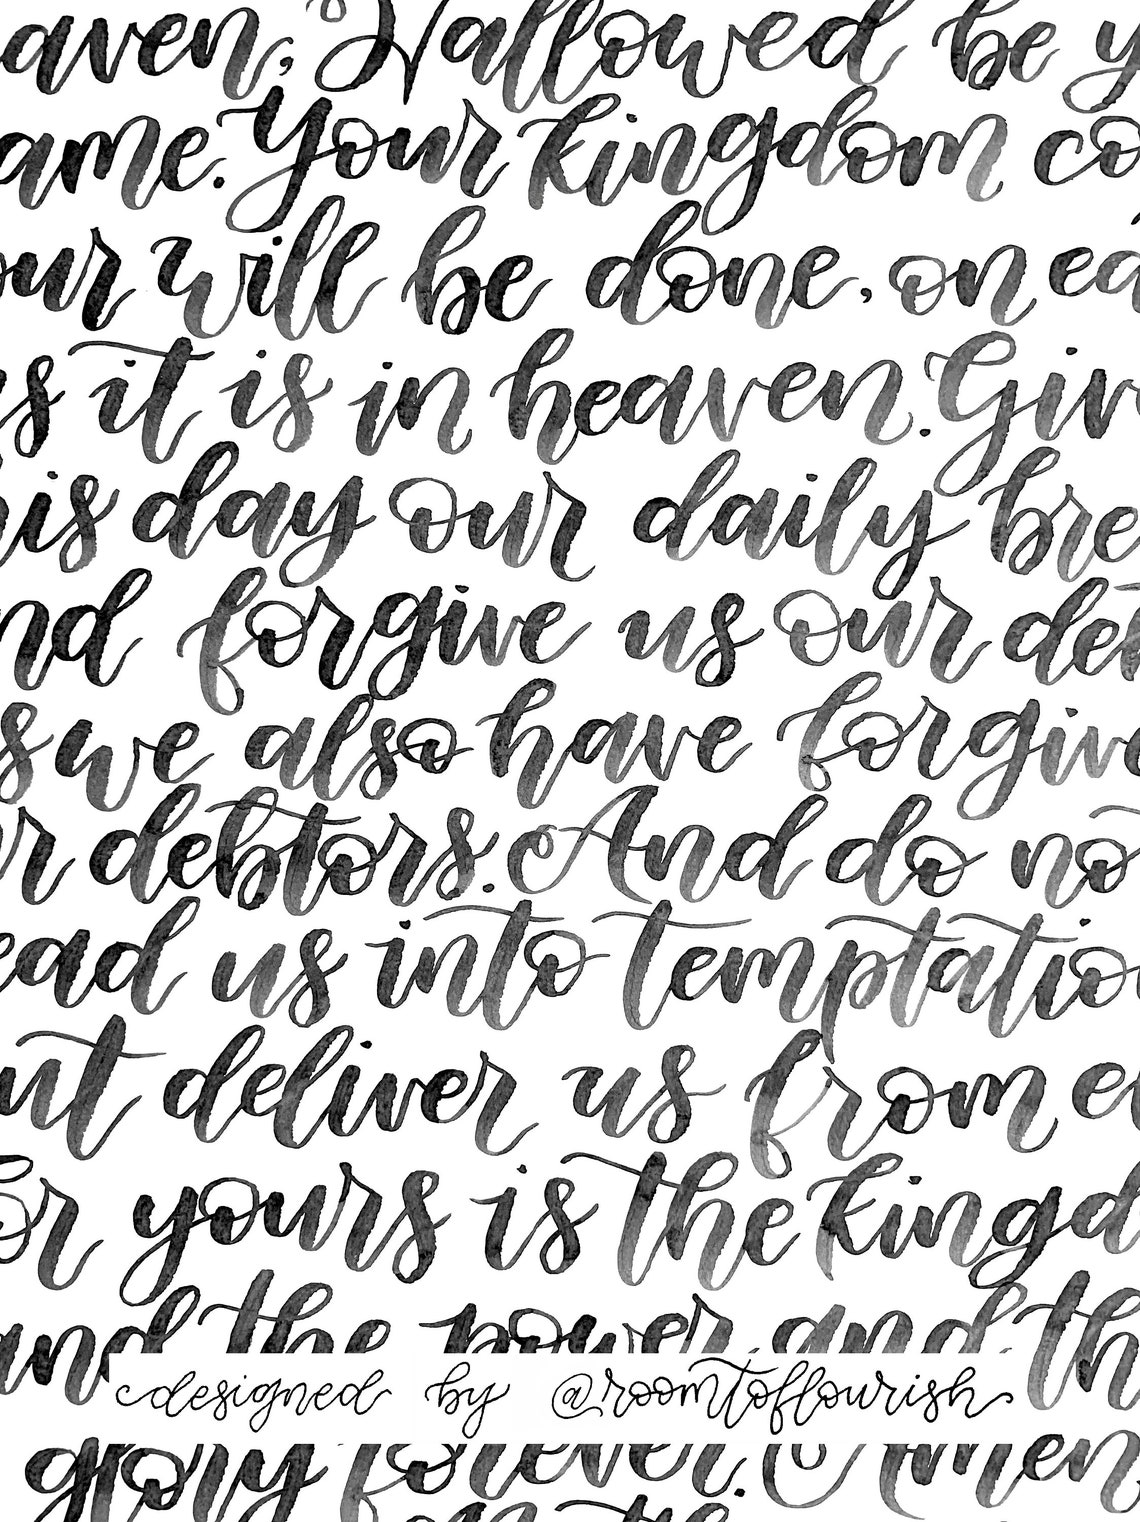 aven, Hallowed be y
ame. Your Kingdom co
our will be done, on ea
as it is in heaven. Giv
his day our daily bre
nd forgive us our deb
s we also have forgive
r debtors. And do no
ead us into temptatio
ut deliver us from e
or yours is the Kingd
and the power and th
designed by @roomtoflourish
glory forever. Amen.